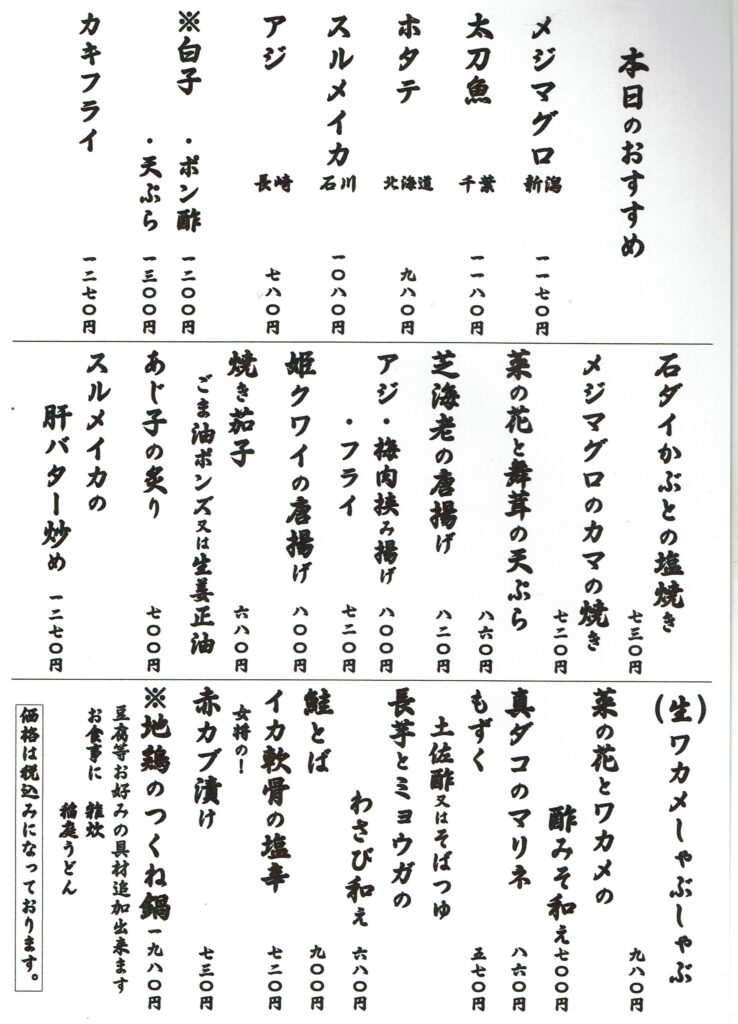 本日のおすすめ
メジマグロ 新潟 一一七〇円
太刀魚 千葉 一一八〇円
ホタテ 北海道 九八〇円
スルメイカ 石川 一〇八〇円
アジ 長崎 七八〇円
※白子 ・ポン酢 一二〇〇円
・天ぷら 一三〇〇円
カキフライ 一二七〇円
石ダイかぶとの塩焼き 七三〇円
メジマグロのカマの焼き 七二〇円
菜の花と舞茸の天ぷら 八六〇円
芝海老の唐揚げ 八二〇円
アジ・梅肉挟み揚げ 八〇〇円
・フライ 七二〇円
姫クワイの唐揚げ 八〇〇円
焼き茄子 六八〇円
ごま油ポンズ又は生姜正油
あじ子の炙り 七〇〇円
スルメイカの
肝バター炒め 一二七〇円
(生)ワカメしゃぶしゃぶ 九八〇円
菜の花とワカメの
酢みそ和え 七〇〇円
真ダコのマリネ 八六〇円
もずく 五七〇円
土佐酢又はそばつゆ
長芋とミョウガの
わさび和え 六八〇円
鮭とば 九〇〇円
イカ軟骨の塩辛 七二〇円
女将の!
赤カブ漬け 七三〇円
※地鶏のつくね鍋 一九八〇円
豆腐等お好みの具材追加出来ます
お食事に 雑炊
稲庭うどん
価格は税込みになっております。